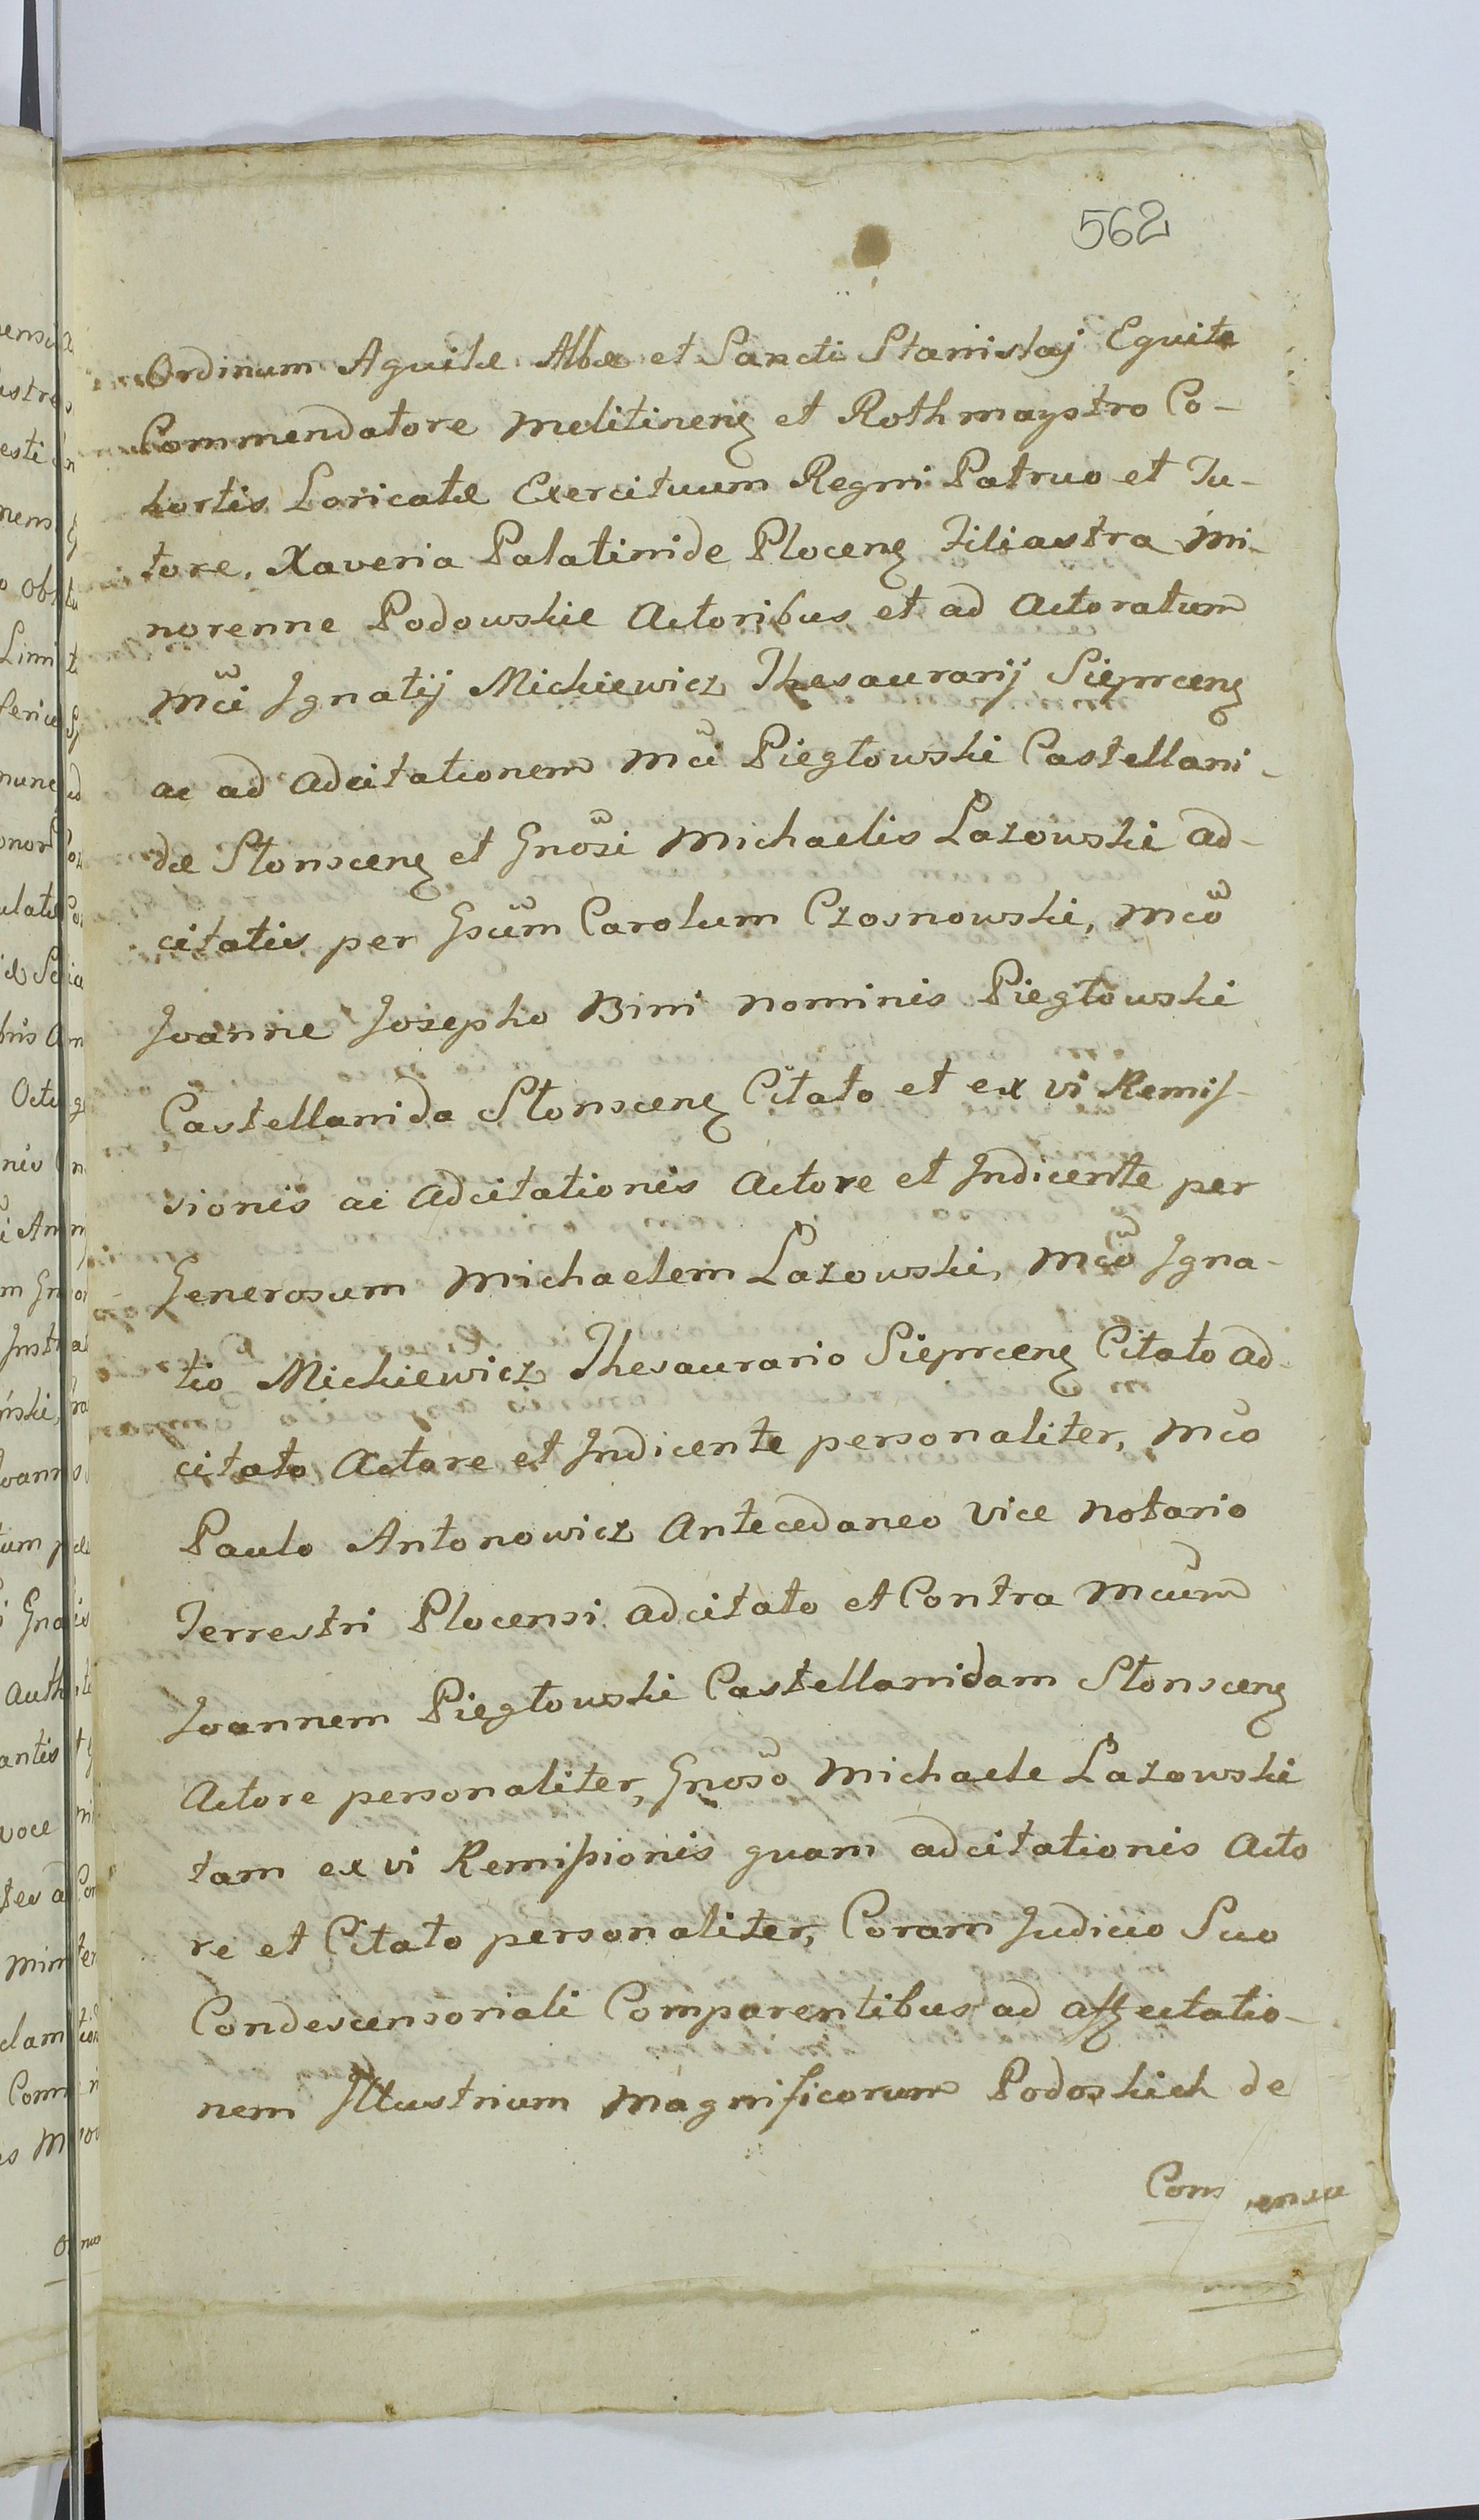 562
Ordinum Aquilæ Albæ et Sancti Stanislaj Equite
Commendatore Melitinenſ et Rothmaystro Co-
hortis Loricatæ Exercituum Regni Patruo et Tu-
tore, Xaveria Palatinide Plocenſ Filiastra Mi-
norenne Podowskie Actoribus et ad Actoratum
Mci Ignatij Mickiewicz Thesaurarij Sieprcenſ
ac ad Adcitationem Mci Piegłowski Castellani-
dæ Słonscenſ et Gnosi Michaelis Lazowski ad-
citatis per Gsum Carolum Czosnowski, Mco
Joanne Josepho Bini nominis Piegłowski
Castellanida Słonscenſ Citato et ex vi Remiſ-
sionis ac Adcitationis Actore et Indicente per
Generosum Michaelem Lazowski, Mco Igna-
tio Mickiewicz Thesaurario Sieprcenſ Citato ad-
citato Actore et Indicente personaliter, Mco
Paulo Antonowicz Antecedaneo Vice Notario
Terrestri Plocensi adcitato et Contra Mcum
Joannem Piegłowski Castellanidam Słonscenſ
Actore personaliter, Gnoso Michaele Lazowski
tam ex vi Remiſsionis quam adcitationis Acto
re et Citato personaliter, Coram Judicio Suo
Condescensoriali Comparentibus ad affectatio-
nem Illustrium Magnificorum Podoskich de
Cons ensu